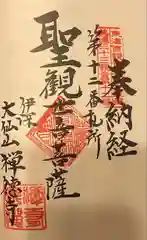 奉納経
第十二番札所
聖観世音菩薩
伊澤
大仙山禅徳寺